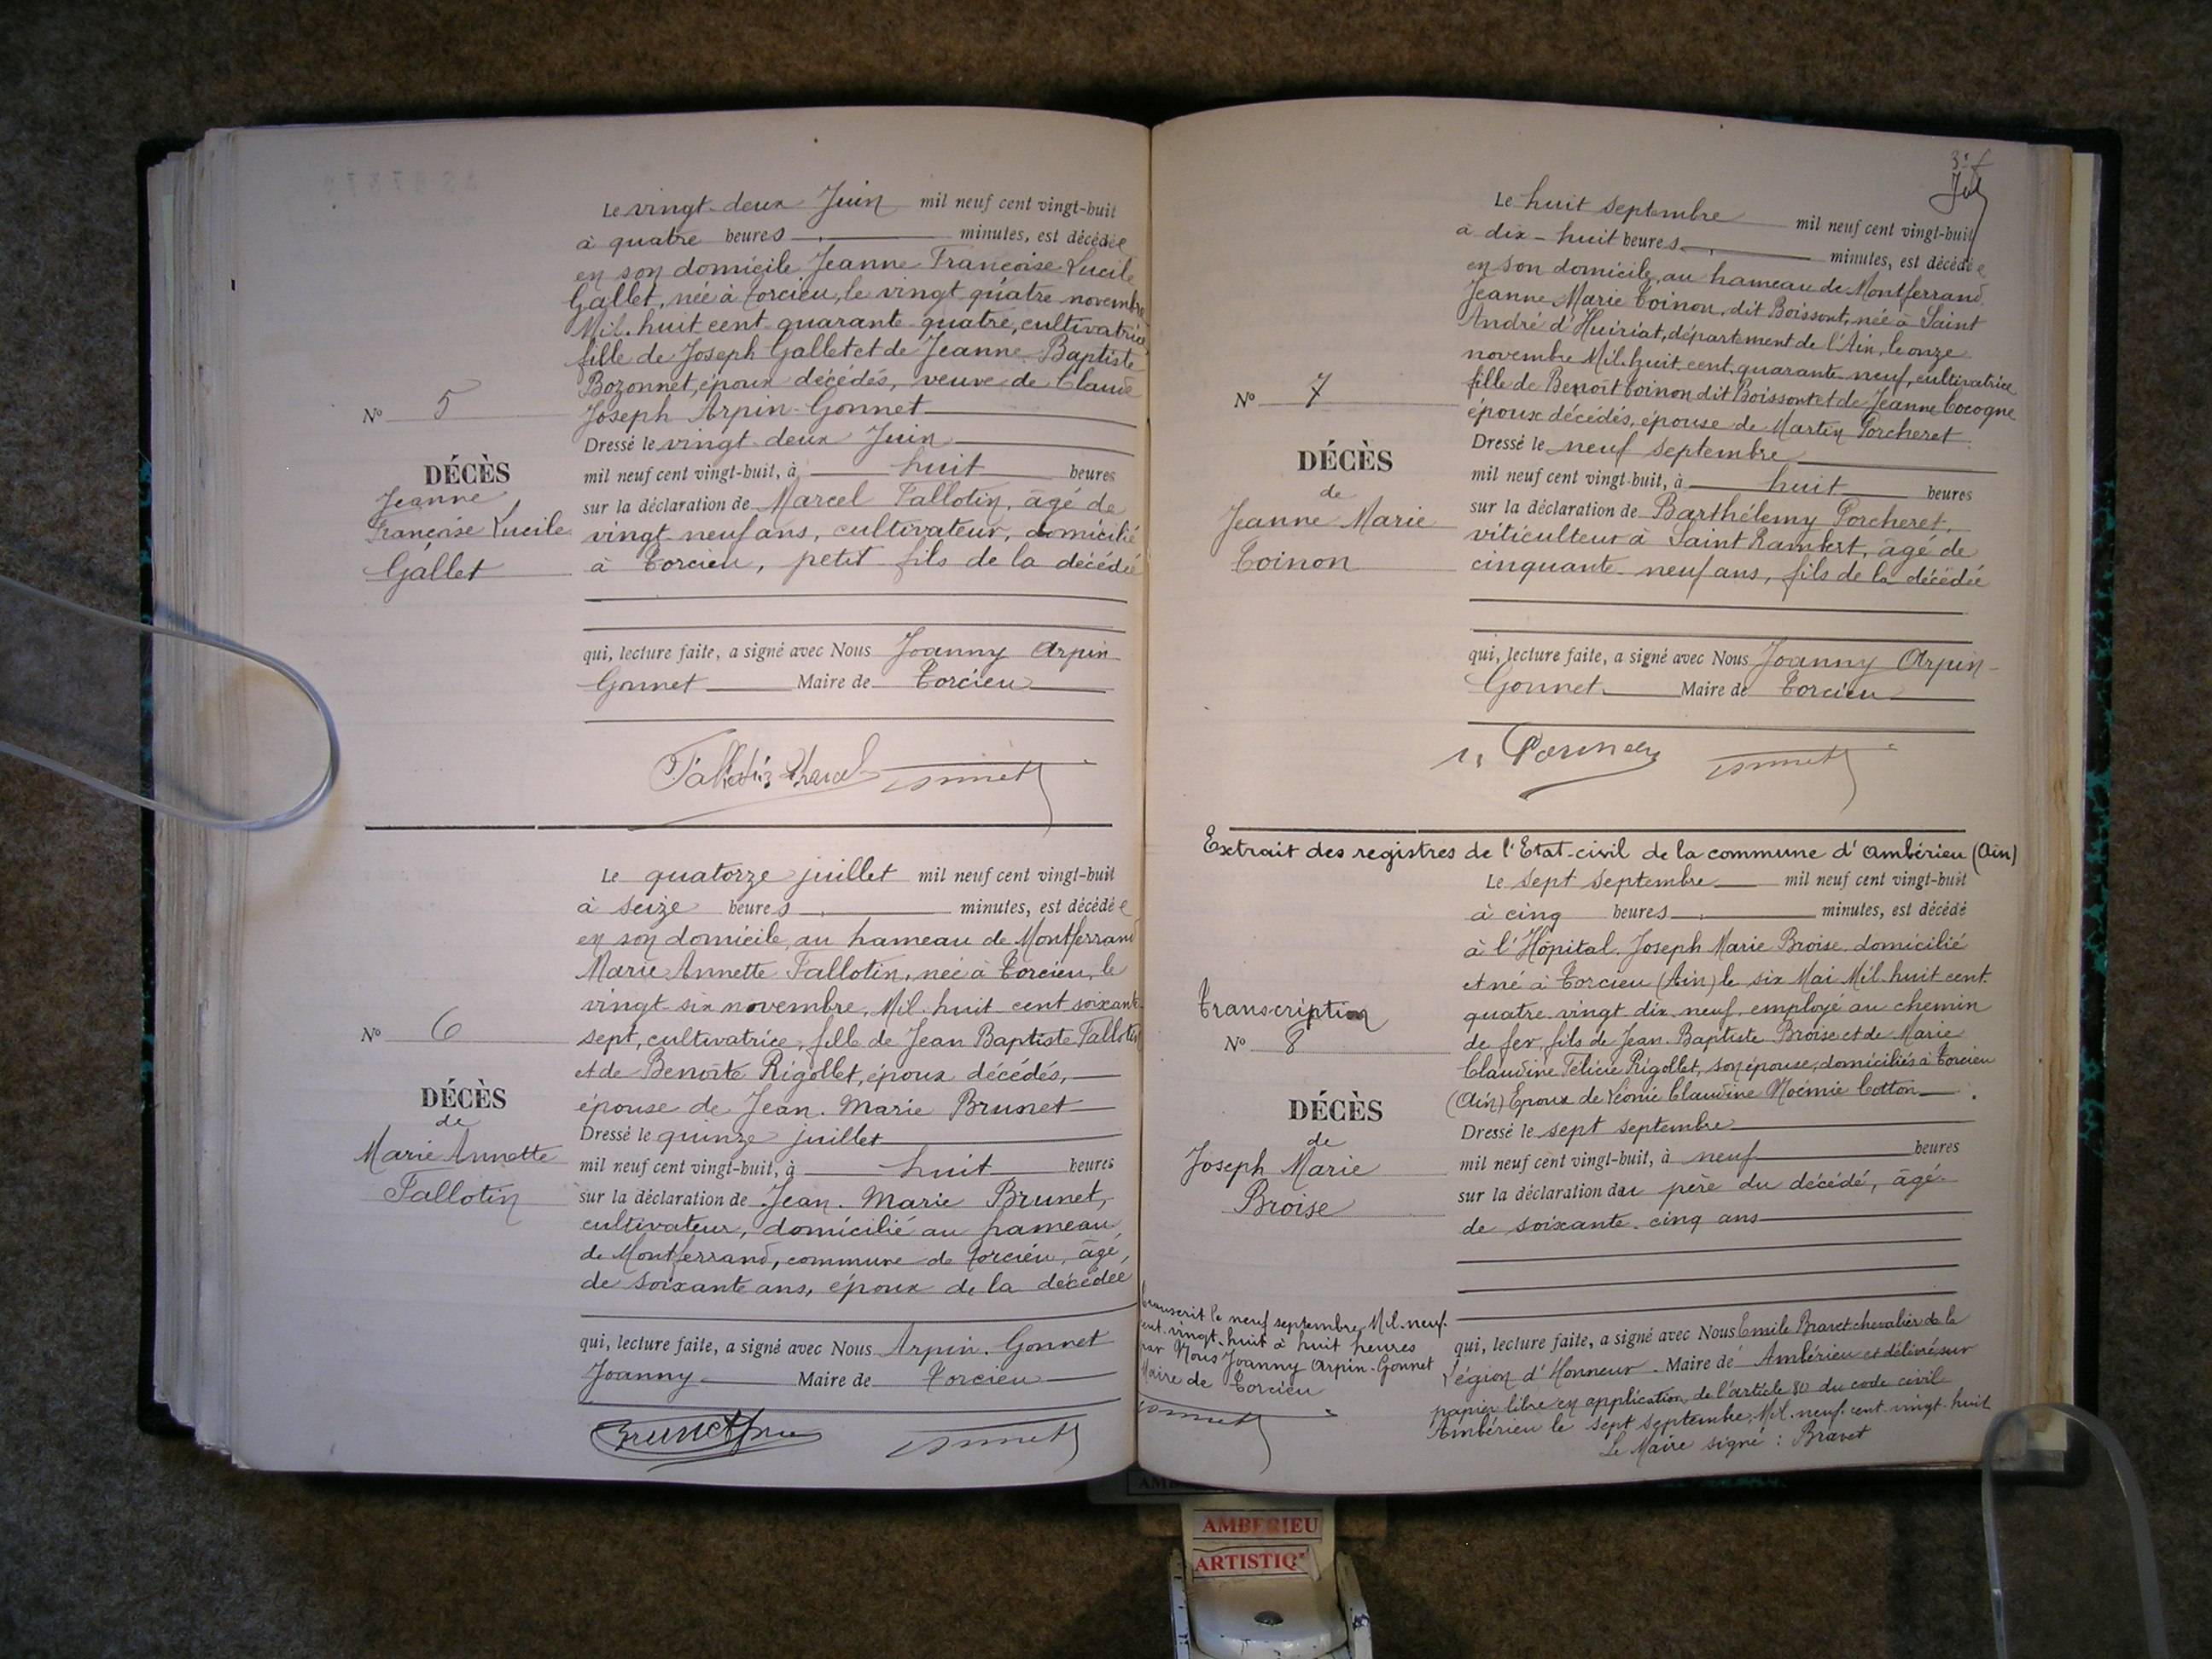 Le vingt-deux Juin mil neuf cent vingt-huit
à quatre heures minutes, est décédée
en son domicile Jeanne Françoise Lucile
Gallet, née à Torcieu, le vingt quatre novembre
Mil. huit cent quarante quatre, cultivatrice
fille de Joseph Gallet et de Jeanne Baptiste
Bozonnet, époux décédés, veuve de Claude
Joseph Arpin-Gonnet
Nº 5
Dressé le vingt deux Juin
DÉCÈS
mil neuf cent vingt-huit, à huit heures
Jeanne
Françoise Lucile
Gallet
sur la déclaration de Marcel Tallotin, âgé de
vingt neuf ans, cultivateur, domicilié
à Torcieu, petit fils de la décédée
qui, lecture faite, a signé avec Nous Joanny Arpin
Gonnet Maire de Torcieu
Le quatorze juillet mil neuf cent vingt-huit
à seize heures minutes, est décédée
en son domicile, au hameau de Montferrand
Marie Annette Tallotin, née à Torcieu, le
vingt six novembre, Mil. huit cent soixante
sept, cultivatrice, fille de Jean Baptiste Tallotin
et de Benoîte Rigollet, époux décédés,
épouse de Jean. Marie Brunet
Nº 6
Dressé le quinze juillet
DÉCÈS
de
Marie Annette
Tallotin
mil neuf cent vingt-huit, à huit heures
sur la déclaration de Jean. Marie Brunet,
cultivateur, domicilié au hameau
de Montferrand, commune de Torcieu, âgé,
de soixante ans, époux de la décédée
qui, lecture faite, a signé avec Nous Arpin. Gonnet
Joanny Maire de Torcieu
3e f
Le huit septembre mil neuf cent vingt-huit
à dix-huit heures minutes, est décédée
en son domicile, au hameau de Montferrand
Jeanne Marie Toinon, dit Boissont, née à Saint
André d'Huiriat, département de l'Ain, le onze
novembre Mil. huit cent. quarante neuf, cultivatrice
fille de Benoît Toinon dit Boissont et de Jeanne Cocogne
époux décédés, épouse de Martin Porcheret
Nº 7
Dressé le neuf septembre
DÉCÈS
de
Jeanne Marie
Toinon
mil neuf cent vingt-huit, à huit heures
sur la déclaration de Barthélemy Porcheret,
viticulteur à Saint Rambert, âgé de
cinquante neuf ans, fils de la décédée
qui, lecture faite, a signé avec Nous Joanny Arpin-
Gonnet Maire de Torcieu
Extrait des registres de l'Etat-civil de la commune d'Ambérieu (Ain)
Le sept septembre mil neuf cent vingt-huit
à cinq heures minutes, est décédé
à l'Hôpital. Joseph Marie Broise domicilié
et né à Torcieu (Ain) le six Mai Mil. huit cent.
quatre vingt dix neuf, employé au chemin
de fer, fils de Jean. Baptiste Broise et de Marie
Claudine Félicie Rigollet, son épouse, domiciliés à Torcieu
(Ain) Epoux de Léonie Claudine Noémie Cotton
Transcription
Nº 8
DÉCÈS
de
Joseph Marie
Broise
Dressé le sept septembre
mil neuf cent vingt-huit, à neuf heures
sur la déclaration du père du décédé, âgé
de soixante. cinq ans
qui, lecture faite, a signé avec Nous Emile Bravet chevalier de la
Légion d'Honneur. Maire de Ambérieu et délivré sur
papier libre en application de l'article 80 du code civil
Ambérieu le sept septembre, Mil. neuf. cent. vingt. huit
Le Maire signé : Bravet
Transcrit le neuf septembre Mil. neuf.
cent. vingt. huit à huit heures
par Nous Joanny Arpin-Gonnet
Maire de Torcieu
AMBERIEU
ARTISTIQ